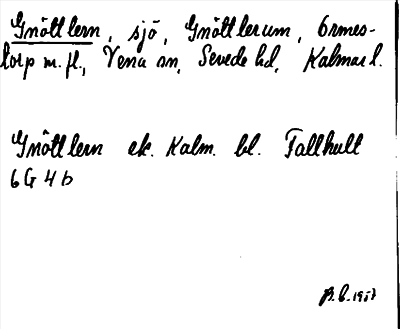 Gnöttlern, sjö, Gnöttlerum, Ormes-
torp m. fl., Vena sn, Sevede hd, Kalmar l.
Gnöttlern ek. Kalm. bl. Tallhult
6G 4b